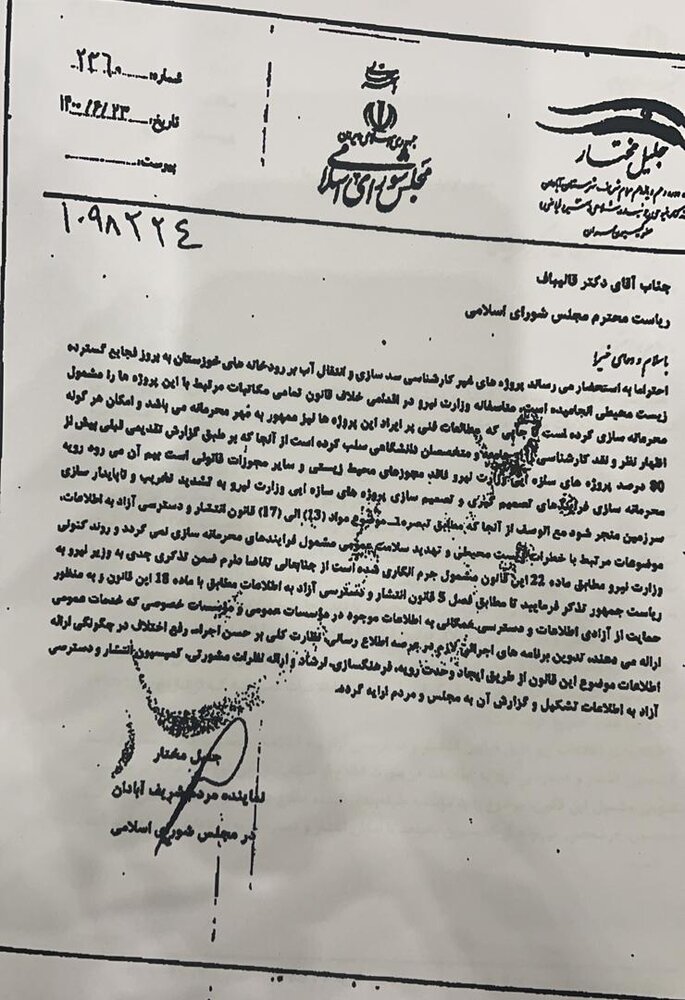 باسمه تعالی
جمهوری اسلامی ایران
مجلس شورای اسلامی
جلیل مختار
شماره: ۲۳۶۰
تاریخ: ۱۴۰۰/۶/۲۳
پیوست:
۱۰۹۸۲۲۴
جناب آقای دکتر قالیباف
ریاست محترم مجلس شورای اسلامی
باسلام و دعای خیر؛
احتراما به استحضار می رساند پروژه های غیر کارشناسی سد سازی و انتقال آب بر رودخانه های خوزستان به بروز فجایع گسترده
زیست محیطی انجامیده است. متاسفانه وزارت نیرو در اقدامی خلاف قانون تمامی مکاتبات مرتبط با این پروژه ها را مشمول
محرمانه سازی کرده است تا جایی که مطالعات فنی پر ایراد این پروژه ها نیز ممهور به مهر محرمانه می باشد و امکان هر گونه
اظهار نظر و نقد کارشناسی از جامعه و متخصصان دانشگاهی سلب کرده است از آنجا که بر طبق گزارش تقدیمی قبلی بیش از
90 درصد پروژه های سازه ایی وزارت نیرو فاقد مجوزهای محیط زیستی و سایر مجوزات قانونی است بیم آن می رود رویه
محرمانه سازی فرایندهای تصمیم گیری و تصمیم سازی پروژه های سازه ایی وزارت نیرو به تشدید تخریب و ناپایدار سازی
سرزمین منجر شود مع الوصف از آنجا که مطابق تبصره موضوع مواد (13) الی (17) قانون انتشار و دسترسی آزاد به اطلاعات،
موضوعات مرتبط با خطرات زیست محیطی و تهدید سلامت عمومی مشمول فرایندهای محرمانه سازی نمی گردد و روند کنونی
وزارت نیرو مطابق ماده 22 این قانون مشمول جرم انگاری شده است از جنابعالی تقاضا دارم ضمن تذکری جدی به وزیر نیرو به
ریاست جمهور تذکر فرمایید تا مطابق فصل 5 قانون انتشار و دسترسی آزاد به اطلاعات مطابق با ماده 18 این قانون و به منظور
حمایت از آزادی اطلاعات و دسترسی همگانی به اطلاعات موجود در مؤسسات عمومی و مؤسسات خصوصی که خدمات عمومی
ارائه می دهند، تدوین برنامه های اجرائی لازم در عرصه اطلاع رسانی، نظارت کلی بر حسن اجراء، رفع اختلاف در چگونگی ارائه
اطلاعات موضوع این قانون از طریق ایجاد وحدت رویه، فرهنگسازی، ارشاد و ارائه نظرات مشورتی، کمیسیون انتشار و دسترسی
آزاد به اطلاعات تشکیل و گزارش آن به مجلس و مردم ارایه گردد.
جلیل مختار
نماینده مردم شریف آبادان
در مجلس شورای اسلامی